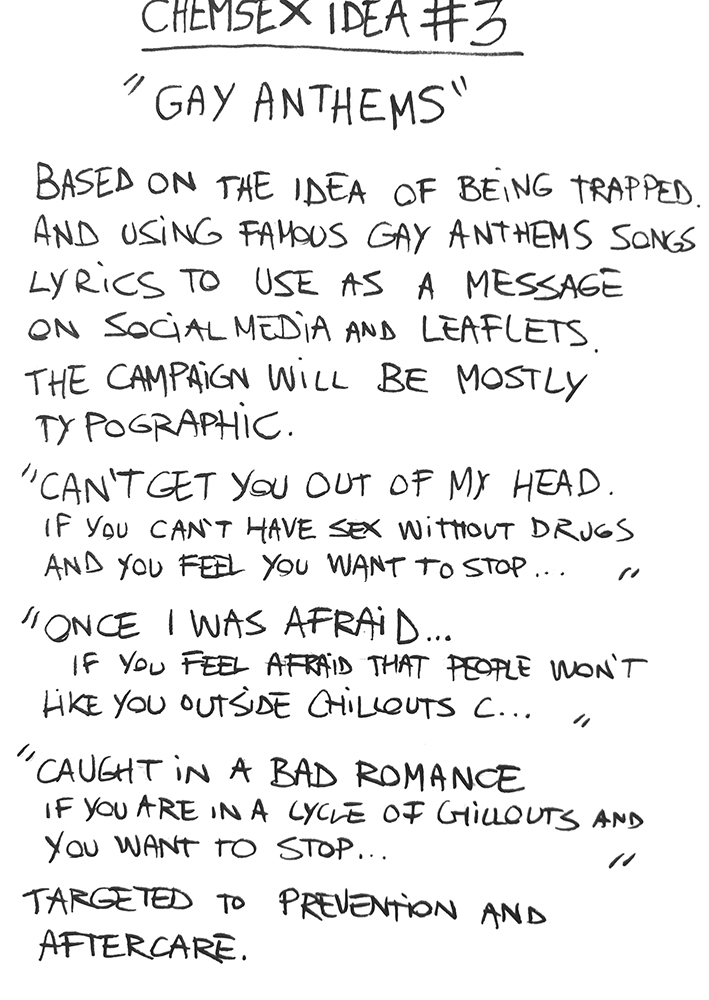 CHEMSEX IDEA #3
"GAY ANTHEMS"
BASED ON THE IDEA OF BEING TRAPPED.
AND USING FAMOUS GAY ANTHEMS SONGS
LYRICS TO USE AS A MESSAGE
ON SOCIAL MEDIA AND LEAFLETS.
THE CAMPAIGN WILL BE MOSTLY
TYPOGRAPHIC.
"CAN'T GET YOU OUT OF MY HEAD.
IF YOU CAN'T HAVE SEX WITHOUT DRUGS
AND YOU FEEL YOU WANT TO STOP... "
"ONCE I WAS AFRAID...
IF YOU FEEL AFRAID THAT PEOPLE WON'T
LIKE YOU OUTSIDE CHILLOUTS C... "
"CAUGHT IN A BAD ROMANCE
IF YOU ARE IN A CYCLE OF CHILLOUTS AND
YOU WANT TO STOP... "
TARGETED TO PREVENTION AND
AFTERCARE.